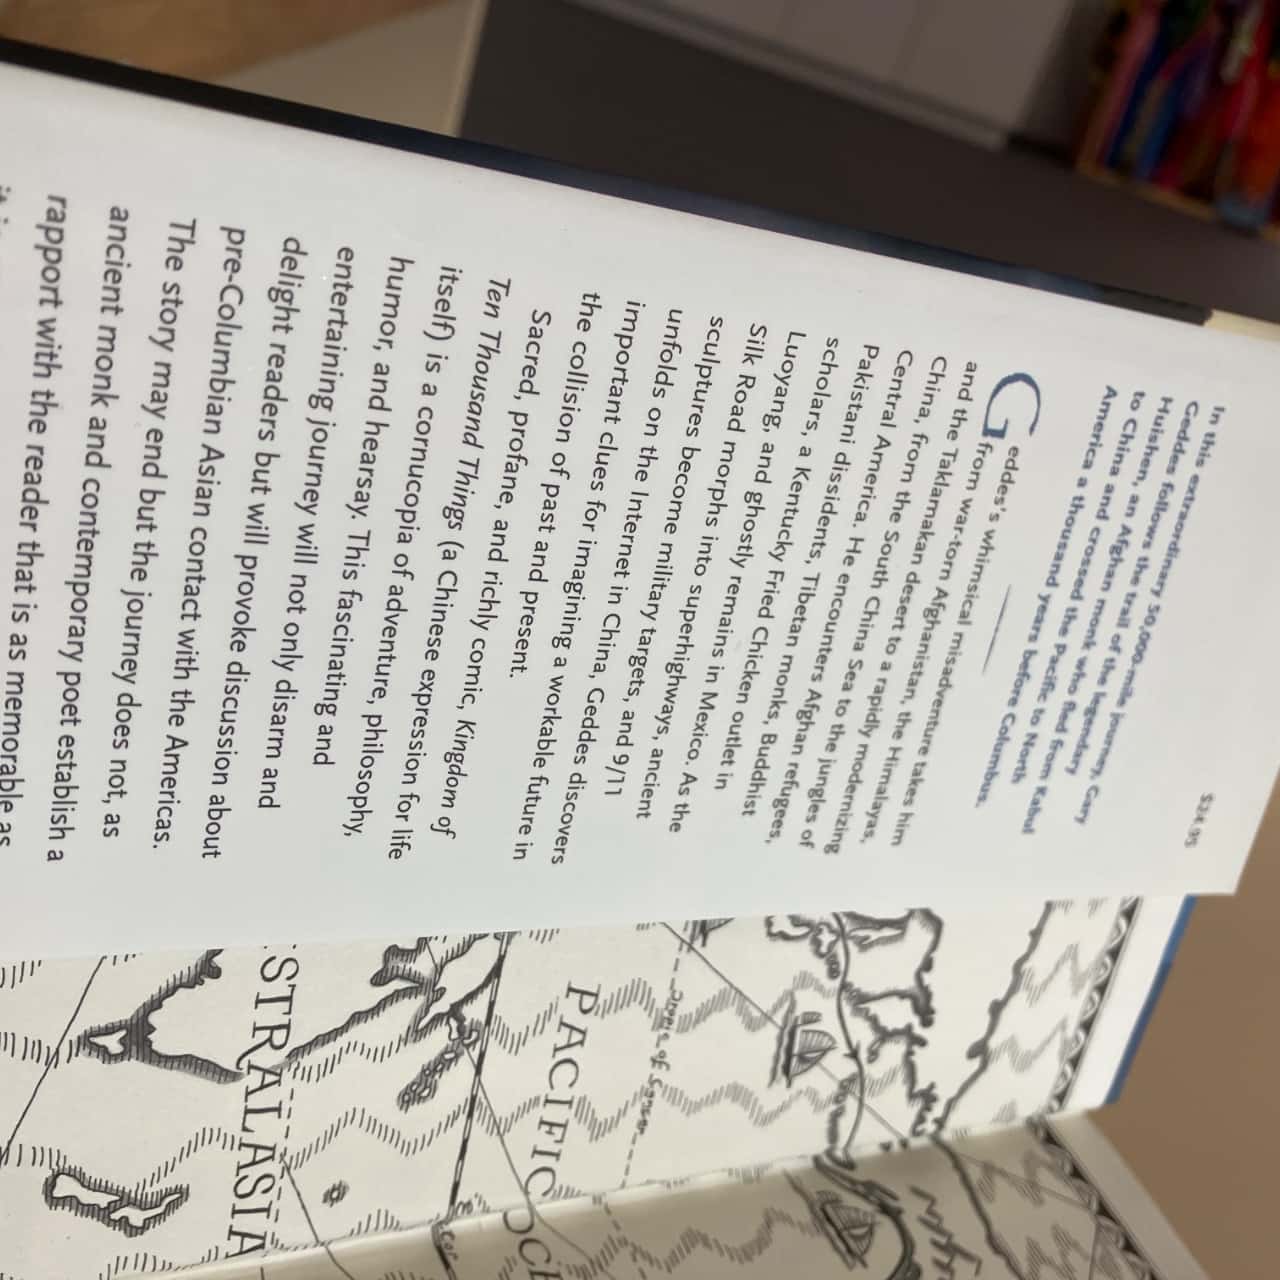 $24.95
In this extraordinary 50,000-mile journey, Gary
Geddes follows the trail of the legendary
Huishen, an Afghan monk who fled from Kabul
to China and crossed the Pacific to North
America a thousand years before Columbus.
Geddes's whimsical misadventure takes him
from war-torn Afghanistan, the Himalayas,
and the Taklamakan desert to a rapidly modernizing
China, from the South China Sea to the jungles of
Central America. He encounters Afghan refugees,
Pakistani dissidents, Tibetan monks, Buddhist
scholars, a Kentucky Fried Chicken outlet in
Luoyang, and ghostly remains in Mexico. As the
Silk Road morphs into superhighways, ancient
sculptures become military targets, and 9/11
unfolds on the Internet in China, Geddes discovers
important clues for imagining a workable future in
the collision of past and present.
Sacred, profane, and richly comic, Kingdom of
Ten Thousand Things (a Chinese expression for life
itself) is a cornucopia of adventure, philosophy,
humor, and hearsay. This fascinating and
entertaining journey will not only disarm and
delight readers but will provoke discussion about
pre-Columbian Asian contact with the Americas.
The story may end but the journey does not, as
ancient monk and contemporary poet establish a
rapport with the reader that is as memorable as
it
Tropic of Cancer
PACIFIC OCE
STRALASIA